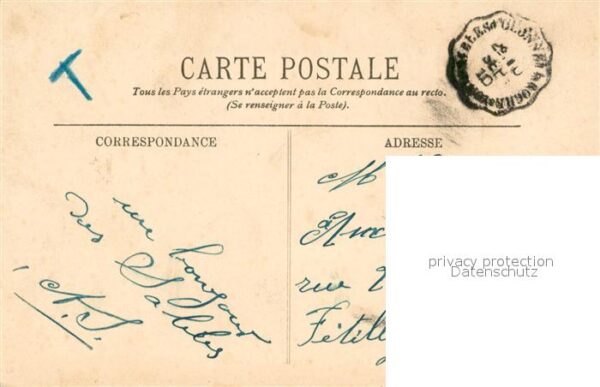 T
CARTE POSTALE
Tous les Pays étrangers n'acceptent pas la Correspondance au recto.
(Se renseigner à la Poste).
CORRESPONDANCE
un bonjour
des Sables
N. S.
ADRESSE
M
rue
privacy protection
Datenschutz